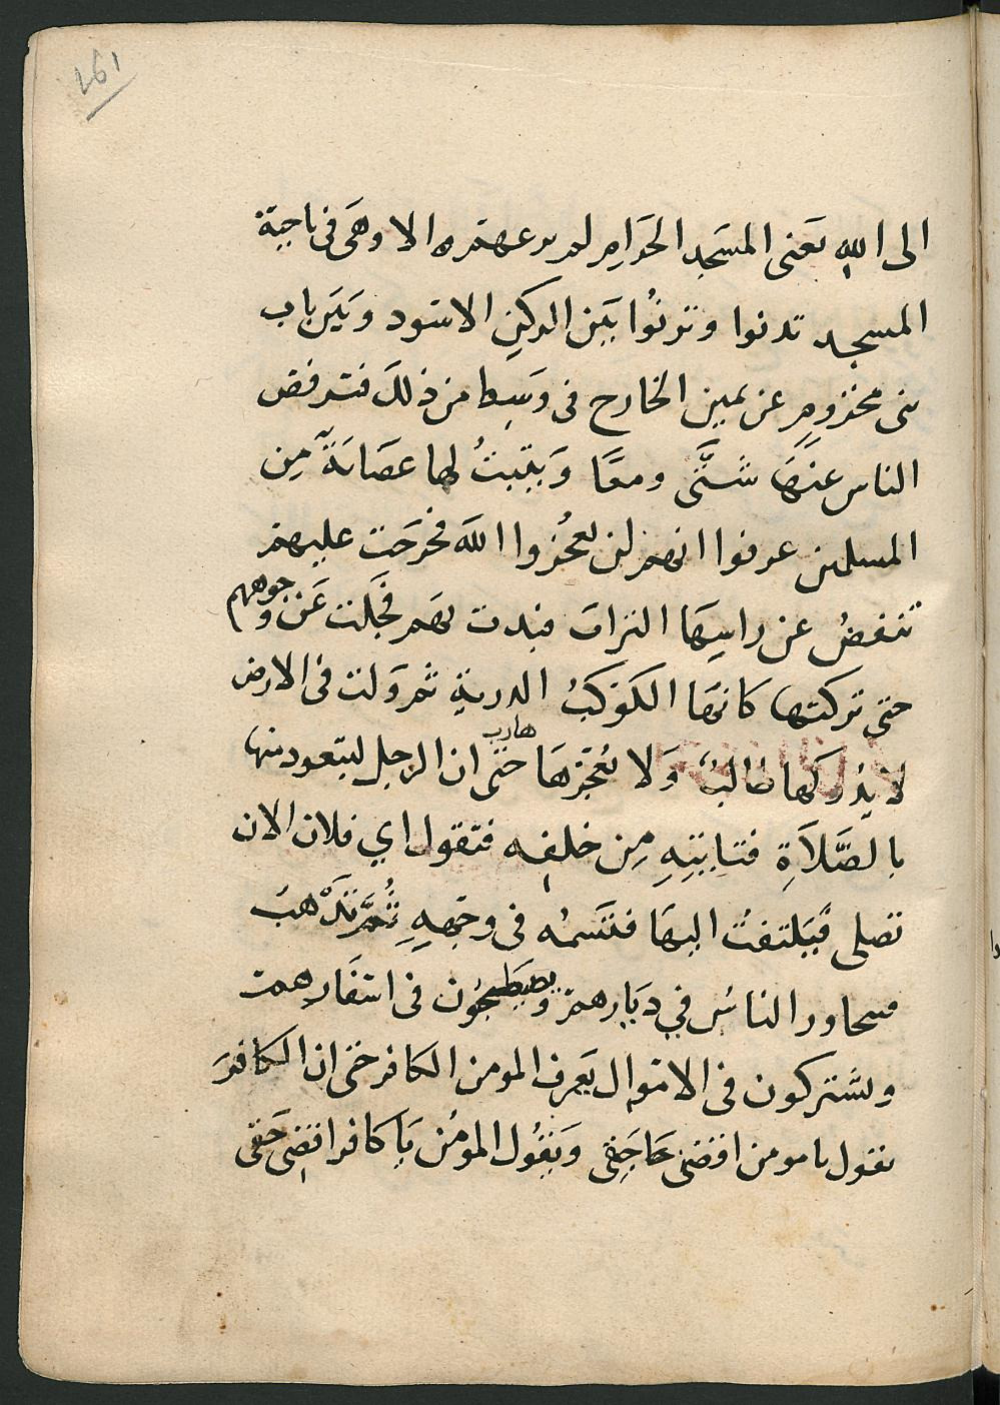 ١٩١
الى الله يعنى المسجد الحرام لم يرعهم الا وهى فى ناحية
المسجد تدنوا وترنُوا بين الركن الاسود وبين باب
بنى مخزوم عن يمين الخارج فى وسط من ذلك فترفض
الناس عنها شتّى ومعًا ويثبتُ لها عصابةٌ من
المسلمين عرفوا انهم لن يعجزوا الله فخرجت عليهم
تنفضُ عن راسِهَا التراب فبدت بهم فجلت عن وجوههم
حتى تركتها كانها الكوكبُ الدرية ثم ولت فى الارض
لا يدركها طالبٌ ولا يعجزها هارب حتى ان الرجل ليتعوذ منها
بالصَّلاةِ فتاتيهِ مِن خلفه فتقول اي فلان الان
تصلى فيلتفتُ اليها فتسمه فى وجههِ ثُمَّ تذهبَ
فيتحاور الناسُ في ديارهم ويصطحبُون فى اسفارهم
ويشتركون فى الاموال يعرف المومن الكافر حتى ان الكافر
يقول يا مومن اقضنى حقى ويقُول المومن يا كافر اقضى حقى